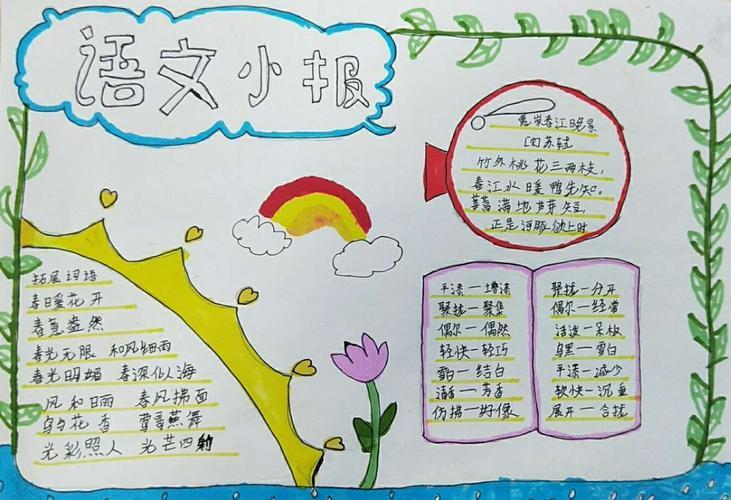 语文小报
惠崇春江晚景
[宋]苏轼
竹外桃花三两枝,
春江水暖鸭先知。
蒌蒿满地芦芽短,
正是河豚欲上时
拓展词语
春暖花开
春意盎然
春光无限 和风细雨
春光明媚 春深似海
风和日丽 春风拂面
鸟语花香 莺歌燕舞
光彩照人 光芒四射
平添一增添
聚拢一聚集
偶尔一偶然
轻快一轻巧
雪白一洁白
清香一芳香
仿拐一好像
聚拢一分开
偶尔一经常
活泼一呆板
乌黑一雪白
平添一减少
软快一沉重
展开一合拢